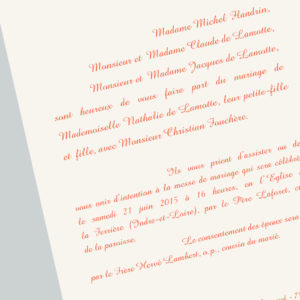 Madame Michel Flandrin,
Monsieur et Madame Claude de Lamotte,
Monsieur et Madame Jacques de Lamotte,
sont heureux de vous faire part du mariage de
Mademoiselle Nathalie de Lamotte, leur petite-fille
et fille, avec Monsieur Christian Fouchère.
Ils vous prient d'assister ou de
vous unir d'intention à la messe de mariage qui sera célébr
le samedi 21 juin 2015 à 16 heures, en l'Eglise
la Ferrière (Indre-et-Loire), par le Père Laforet, c
de la paroisse.
Le consentement des époux sera
par le Frère Hervé Lambert, o.p., cousin du marié.